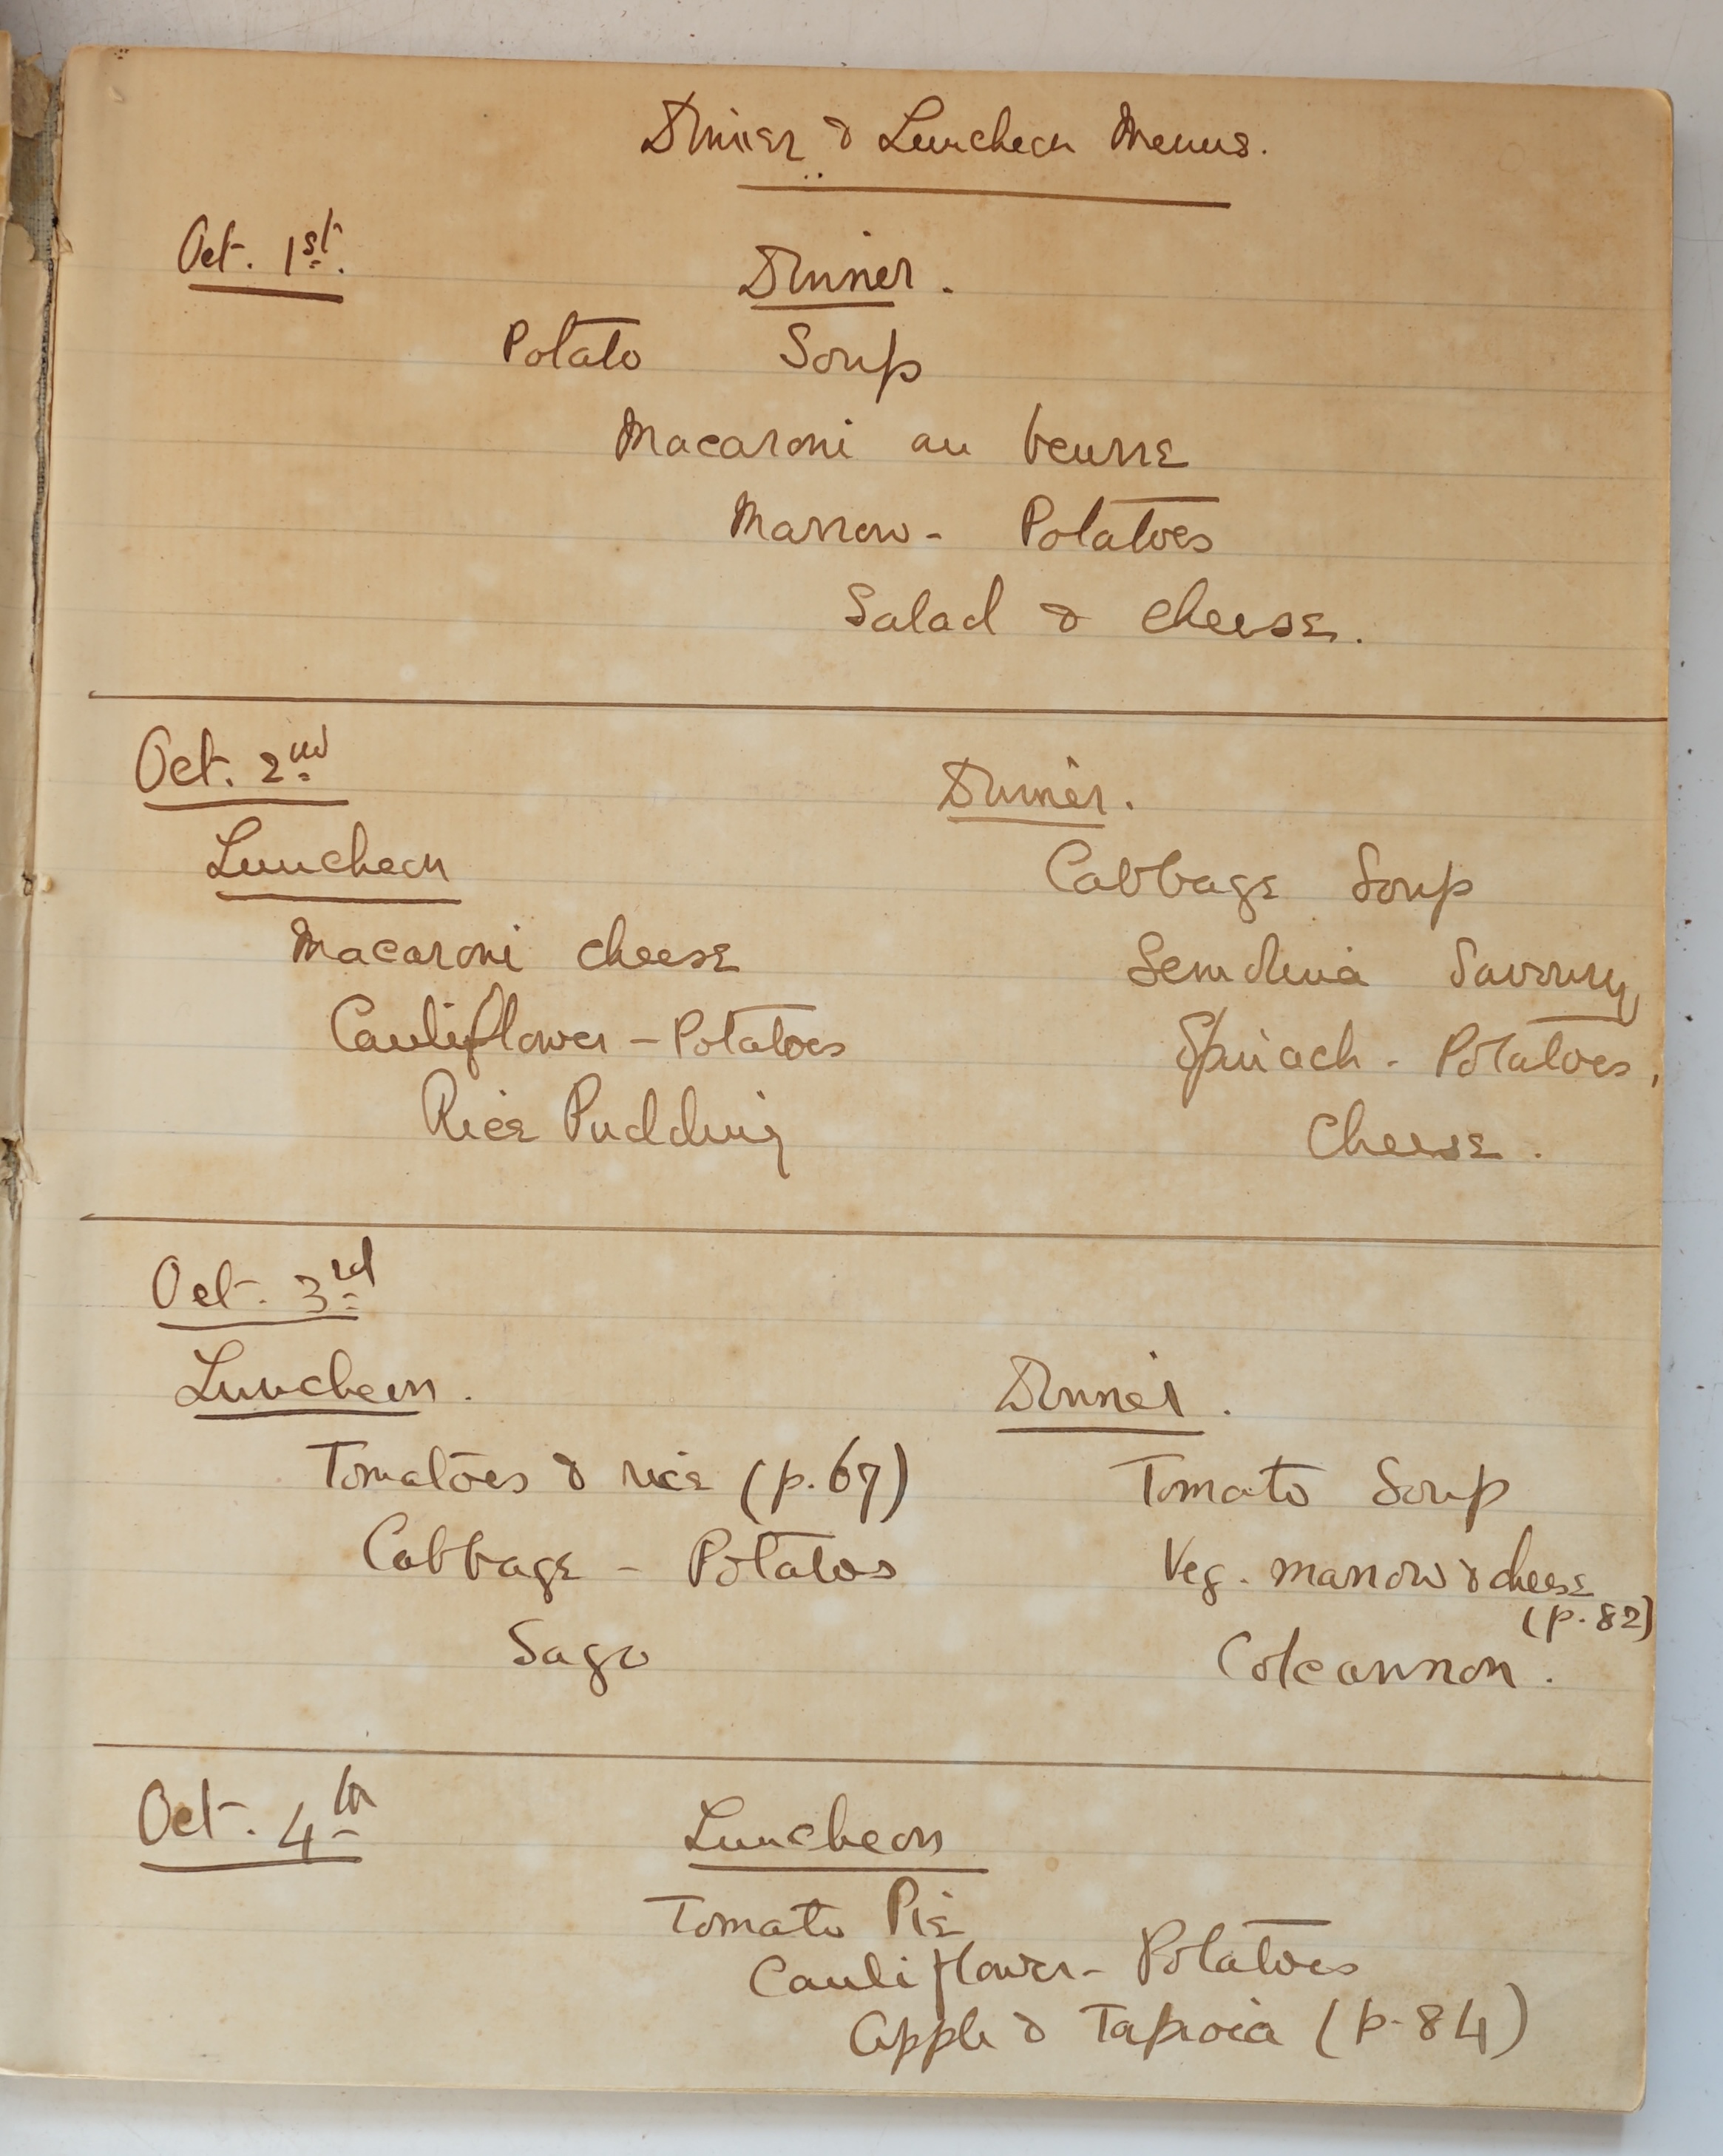 Dinner & Luncheon Menus.
Oct. 1st.
Dinner.
Potato Soup
Macaroni au beurre
Marrow - Potatoes
Salad & cheese.
Oct. 2nd
Luncheon
Macaroni cheese
Cauliflower - Potatoes
Rice Pudding
Dinner.
Cabbage Soup
Semolina Savoury
Spinach - Potatoes,
Cheese.
Oct. 3rd
Luncheon.
Tomatoes & rice (p. 67)
Cabbage - Potatos
Sago
Dinner.
Tomato Soup
Veg. marrow & cheese
(p. 82)
Colcannon.
Oct. 4th
Luncheon
Tomato Pie
Cauliflower - Potatoes
Apple & Tapioca (p. 84)